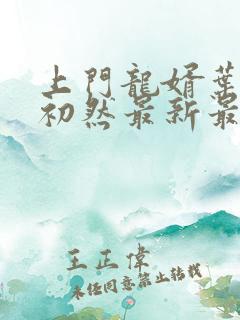 上門龍婿葉
初然最新最
王正偉
未经同意禁止转载